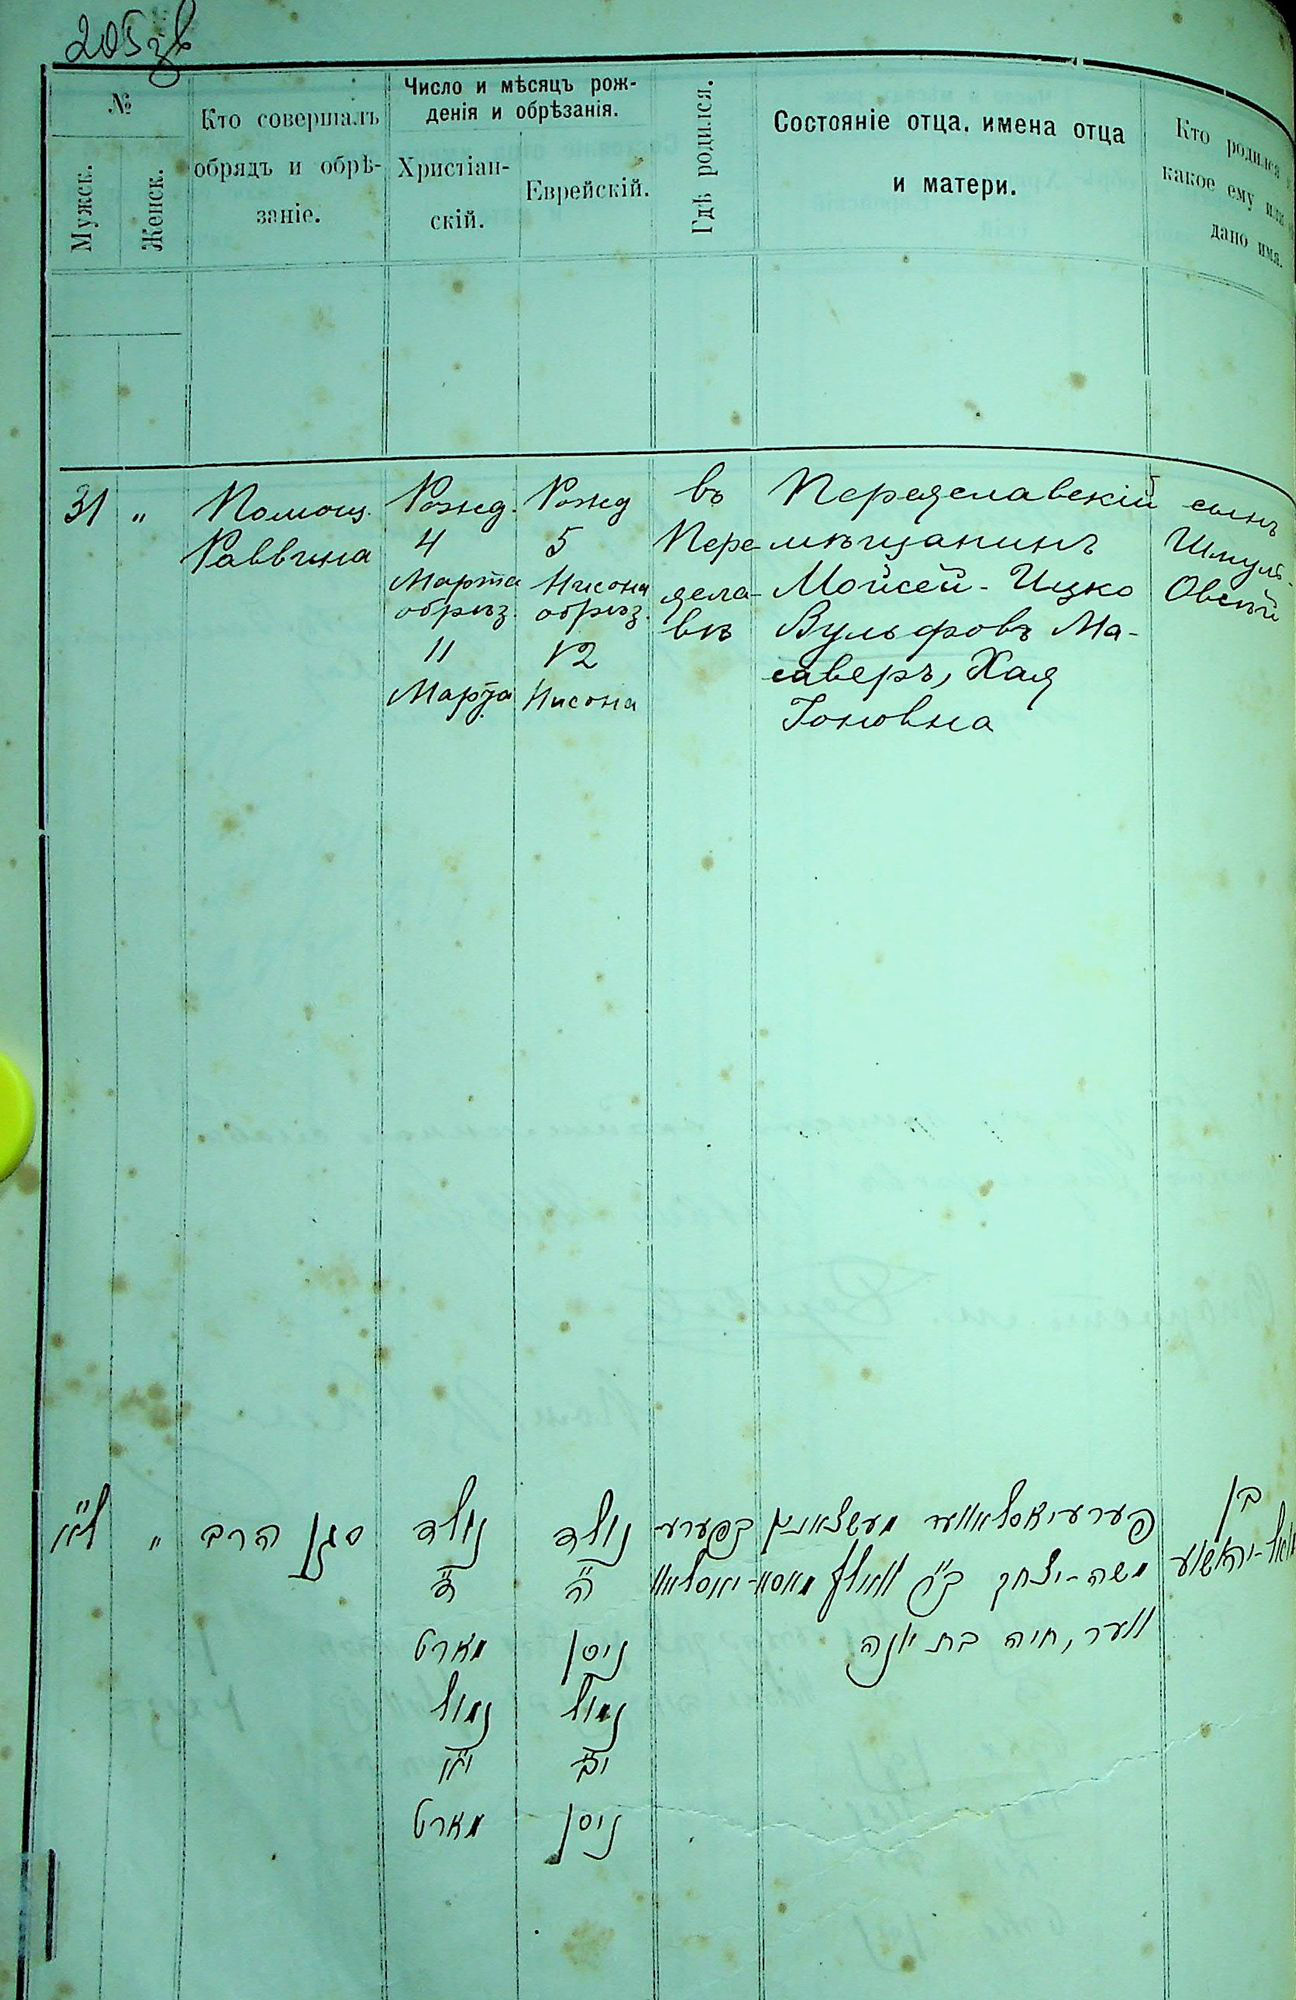 205 зв
№
Мужск.
Женск.
Кто совершалъ
обрядъ и обрѣ-
заніе.
Число и мѣсяцъ рож-
денія и обрѣзанія.
Христіан-
скій.
Еврейскій.
Гдѣ родился.
Состояніе отца, имена отца
и матери.
Кто родился
какое ему или
дано имя.
31 "
Помощ.
Раввина
Рожд.
4
Марта
обрѣз.
11
Марта
Рожд
5
Нисона
обрѣз.
12
Нисона
въ
Пере-
ясла-
вѣ
Переяславскій
мѣщанинъ
Мойсей-Ицко
Вульфовъ Ма-
саверъ, Хая
Іоновна
сынъ
Шмуль-
Овсѣй
ל"א "
סגן הרב
נולד
ד'
מארט
נמול
י"א
מארט
נולד
ה'
ניסן
נמול
י"ב
ניסן
בפערע-
יאסלאוו
פערעיאסלאווער מעשצאנין
משה-יצחק ב"ר וואלף מאסא-
ווער, חיה בת יונה
בן
-יהושע